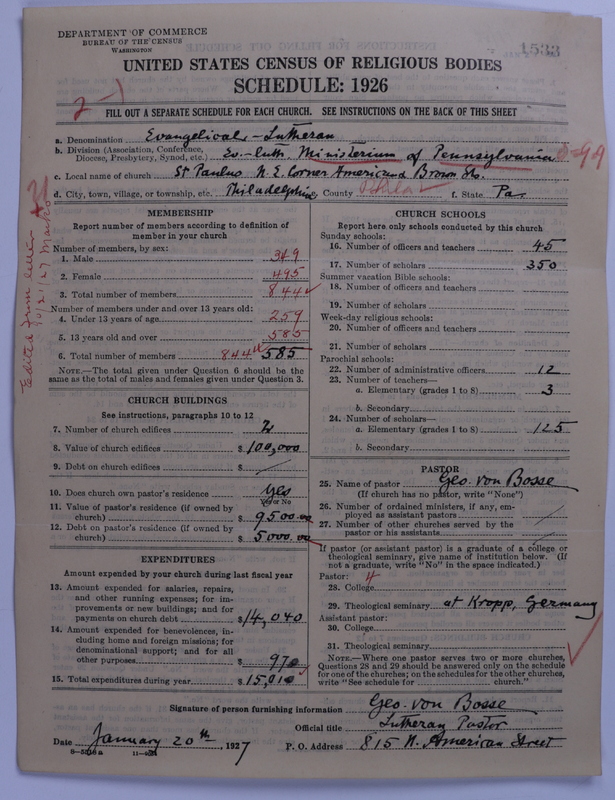 DEPARTMENT OF COMMERCE
BUREAU OF THE CENSUS
WASHINGTON
1533
UNITED STATES CENSUS OF RELIGIOUS BODIES
SCHEDULE: 1926
2-1
FILL OUT A SEPARATE SCHEDULE FOR EACH CHURCH. SEE INSTRUCTIONS ON THE BACK OF THIS SHEET
a. Denomination Evangelical-Lutheran
b. Division (Association, Conference, Diocese, Presbytery, Synod, etc.) Ev.-luth. Ministerium of Pennsylvania
c. Local name of church St Paulus N. E. Corner American and Brown Sts.
d. City, town, village, or township, etc. Philadelphia, County Phila f. State Pa.
Edited from letter 10/21/27
MEMBERSHIP
Report number of members according to definition of
member in your church
Number of members, by sex:
1. Male 349
2. Female 495
3. Total number of members 844
Number of members under and over 13 years old:
4. Under 13 years of age 259
5. 13 years old and over 585
6. Total number of members 844 585
NOTE.—The total given under Question 6 should be
same as the total of males and females given under Question 3.
CHURCH BUILDINGS
See instructions, paragraphs 10 to 12
7. Number of church edifices 2
8. Value of church edifices $ 100,000
9. Debt on church edifices $
10. Does church own pastor's residence yes
Yes or No
11. Value of pastor's residence (if owned by
church) $ 9500.00
12. Debt on pastor's residence (if owned by
church) $ 5000.00
EXPENDITURES
Amount expended by your church during last fiscal year
13. Amount expended for salaries, repairs,
and other running expenses; for im-
provements or new buildings; and for
payments on church debt $ 14,040
14. Amount expended for benevolences, in-
cluding home and foreign missions; for
denominational support; and for all
other purposes $ 970
15. Total expenditures during year $ 15,010
CHURCH SCHOOLS
Report here only schools conducted by this church
Sunday schools:
16. Number of officers and teachers 45
17. Number of scholars 350
Summer vacation Bible schools:
18. Number of officers and teachers
19. Number of scholars
Week-day religious schools:
20. Number of officers and teachers
21. Number of scholars
Parochial schools:
22. Number of administrative officers 12
23. Number of teachers—
a. Elementary (grades 1 to 8) 3
b. Secondary
24. Number of scholars—
a. Elementary (grades 1 to 8) 125
b. Secondary
PASTOR
25. Name of pastor Geo. von Bosse
(If church has no pastor, write "None")
26. Number of ordained ministers, if any, em-
ployed as assistant pastors
27. Number of other churches served by the
pastor or his assistants
If pastor (or assistant pastor) is a graduate of a college or
theological seminary, give name of institution below. (If
not a graduate, write "No" in the space indicated.)
Pastor: 4
28. College
29. Theological seminary at Kropp, Germany
Assistant pastor:
30. College
31. Theological seminary
NOTE.—Where one pastor serves two or more churches,
Questions 28 and 29 should be answered only on the schedule
for one of the churches; on the schedules for the other churches,
write "See schedule for church."
Signature of person furnishing information Geo. von Bosse
Official title Lutheran Pastor
Date January 20th, 1927 P. O. Address 815 N. American Street